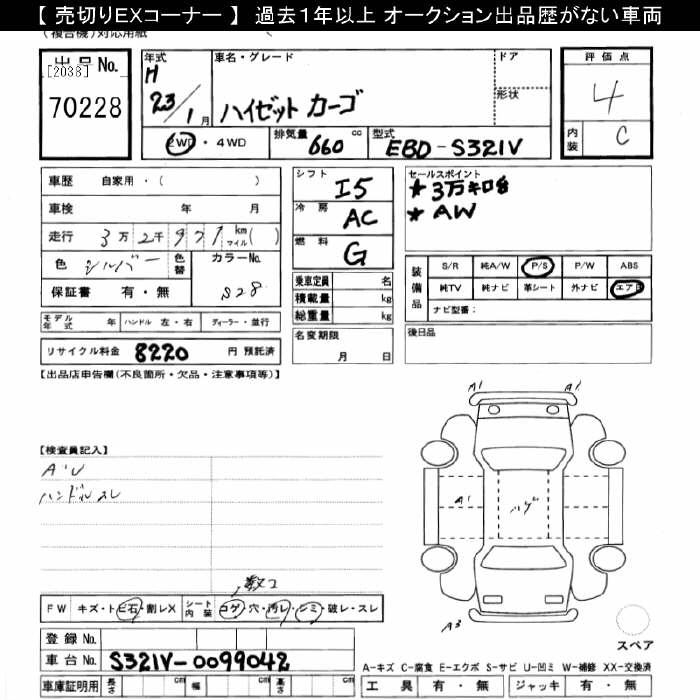 【 売切りEXコーナー 】 過去1年以上 オークション出品歴がない車両
(複合機)対応用紙
出品No.
[2038]
70228
年式
H
23/1月
車名・グレード
ハイゼット カーゴ
ドア
形状
2WD・4WD
排気量 660 cc
型式 EBD-S321V
評価点
4
内装 C
車歴 自家用・( )
車検 年 月
走行 3万2千971km マイル( )
色 シルバー 色替 カラーNo. S28
保証書 有・無
モデル年式 年 ハンドル 左・右 ディーラー・並行
リサイクル料金 8220 円 預託済
シフト I5
冷房 AC
燃料 G
乗車定員 名
積載量 kg
総重量 kg
名変期限
月 日
セールスポイント
★3万キロ台
★AW
装備品
S/R 純A/W P/S P/W ABS
純TV 純ナビ 革シート 外ナビ エアB
ナビ型番:
後日品
【出品店申告欄(不良箇所・欠品・注意事項等)】
【検査員記入】
A・U
ハンドルスレ
A1 A1
A1
ハゲ
A3
スペア
数コ
FW キズ・トビ石・割レX シート内装 コゲ・穴・汚レ・シミ・破レ・スレ
登録No.
車台No. S321V-0099042
車庫証明用 長さ cm 幅 cm 高さ cm
A-キズ C-腐食 E-エクボ S-サビ U-凹ミ W-補修 XX-交換済
工具 有・無 ジャッキ 有・無